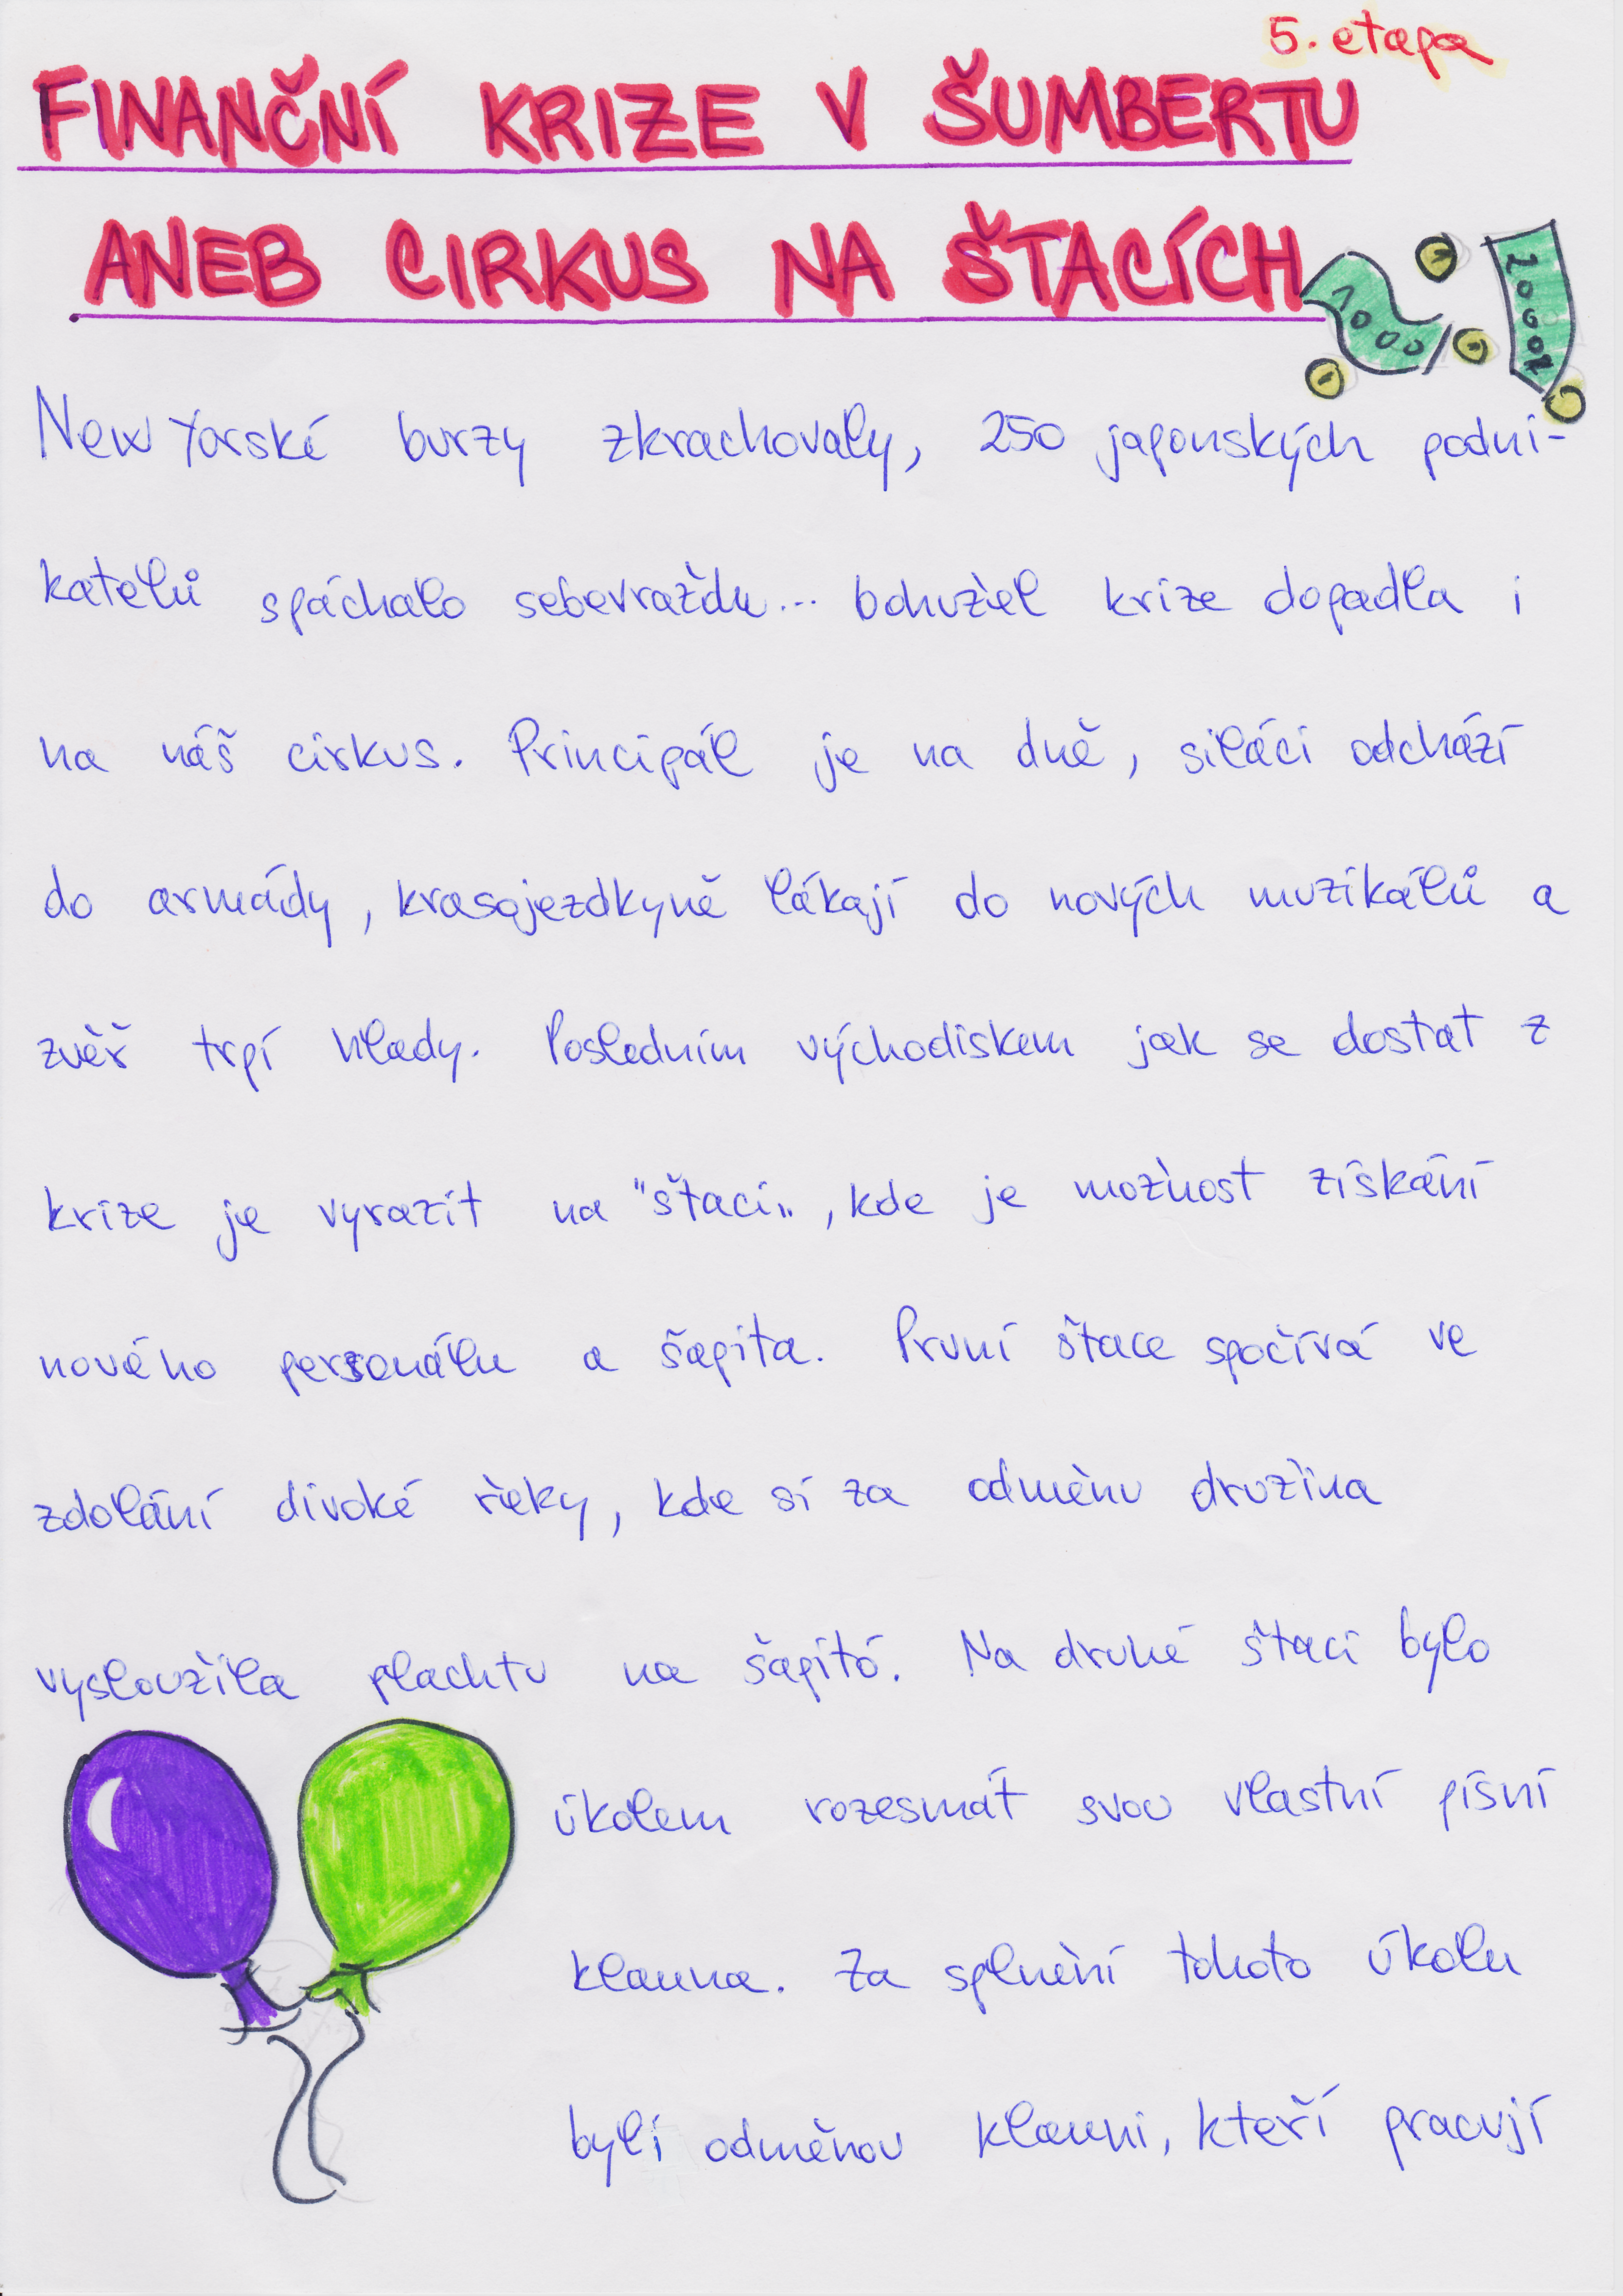 5. etapa
FINANČNÍ KRIZE V ŠUMBERTU
ANEB CIRKUS NA ŠTACÍCH
1000
2000
New Yorské burzy zkrachovaly, 250 japonských podni-
katelů spáchalo sebevraždu... bohužel krize dopadla i
na náš cirkus. Principál je na dně, siláci odchází
do armády, krasojezdkyně lákají do nových muzikálů a
zvěř trpí hlady. Posledním východiskem jak se dostat z
krize je vyrazit na "štaci", kde je možnost získání
nového personálu a šapita. První štace spočívá ve
zdolání divoké řeky, kde si za odměnu družina
vysloužila plachtu na šapitó. Na druhé štaci bylo
úkolem rozesmát svou vlastní písní
klauna. Za splnění tohoto úkolu
byli odměnou klauni, kteří pracují